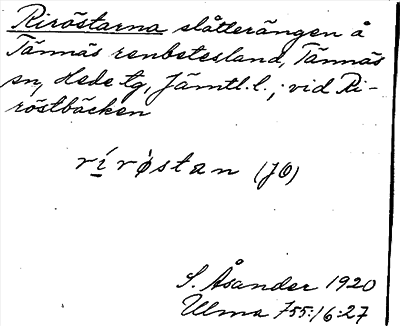 Riröstarna slåtterängen å
Tännäs renbetesland, Tännäs
sn, Hede tg, Jämtl.l.; vid Ri-
röstbäcken
rí̱ rø̀stan (JÖ)
S. Åsander 1920
Ulma 755:16:27